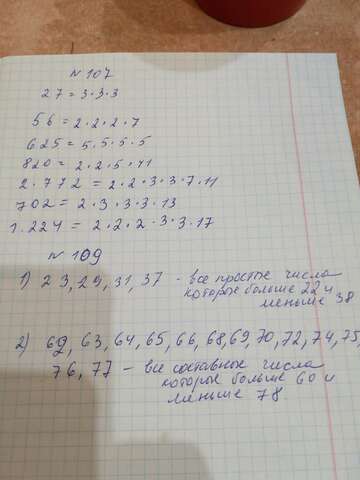 N 107
27 = 3·3·3
56 = 2·2·2·7
625 = 5·5·5·5
820 = 2·2·5·41
2·772 = 2·2·3·3·7·11
702 = 2·3·3·3·13
1.224 = 2·2·2·3·3·17
N 109
1) 23, 29, 31, 37 - все простые числа
которые больше 22 и
меньше 38
2) 62, 63, 64, 65, 66, 68, 69, 70, 72, 74, 75,
76, 77 – все составные числа
которые больше 60 и
меньше 78